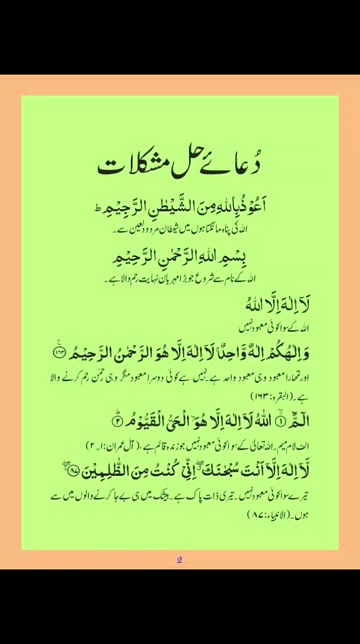 دُعائے حل مشکلات
اَعُوْذُ بِاللهِ مِنَ الشَّيْطٰنِ الرَّجِيْمِ ط
اللہ کی پناہ مانگتا ہوں میں شیطان مردود لعین سے۔
بِسْمِ اللهِ الرَّحْمٰنِ الرَّحِيْمِ
اللہ کے نام سے شروع جو بڑا مہربان نہایت رحم والا ہے۔
لَآ اِلٰهَ اِلَّا اللهُ
اللہ کے سوا کوئی معبود نہیں
وَ اِلٰهُكُمْ اِلٰهٌ وَّاحِدٌ ۚ لَآ اِلٰهَ اِلَّا هُوَ الرَّحْمٰنُ الرَّحِيْمُ ﴿۱۶۳﴾
اور تمھارا معبود وہی معبود واحد ہے۔ نہیں ہے کوئی دوسرا معبود مگر وہی رحمٰن رحم کرنے والا
ہے۔ (البقرہ: ۱۶۳)
الٓـمّٓ ﴿۱﴾ اللهُ لَآ اِلٰهَ اِلَّا هُوَ الْحَيُّ الْقَيُّوْمُ ﴿۲﴾
الف لام میم۔ اللہ تعالیٰ کے سوا کوئی معبود نہیں جو زندہ و قائم ہے۔ (آل عمران: ۱۔۲)
لَّآ اِلٰهَ اِلَّآ اَنْتَ سُبْحٰنَكَ ۖ اِنِّيْ كُنْتُ مِنَ الظّٰلِمِيْنَ ﴿۸۷﴾
تیرے سوا کوئی معبود نہیں۔ تیری ذات پاک ہے۔ بیشک میں ہی بے جا کرنے والوں میں سے
ہوں۔ (الانبیاء: ۸۷)